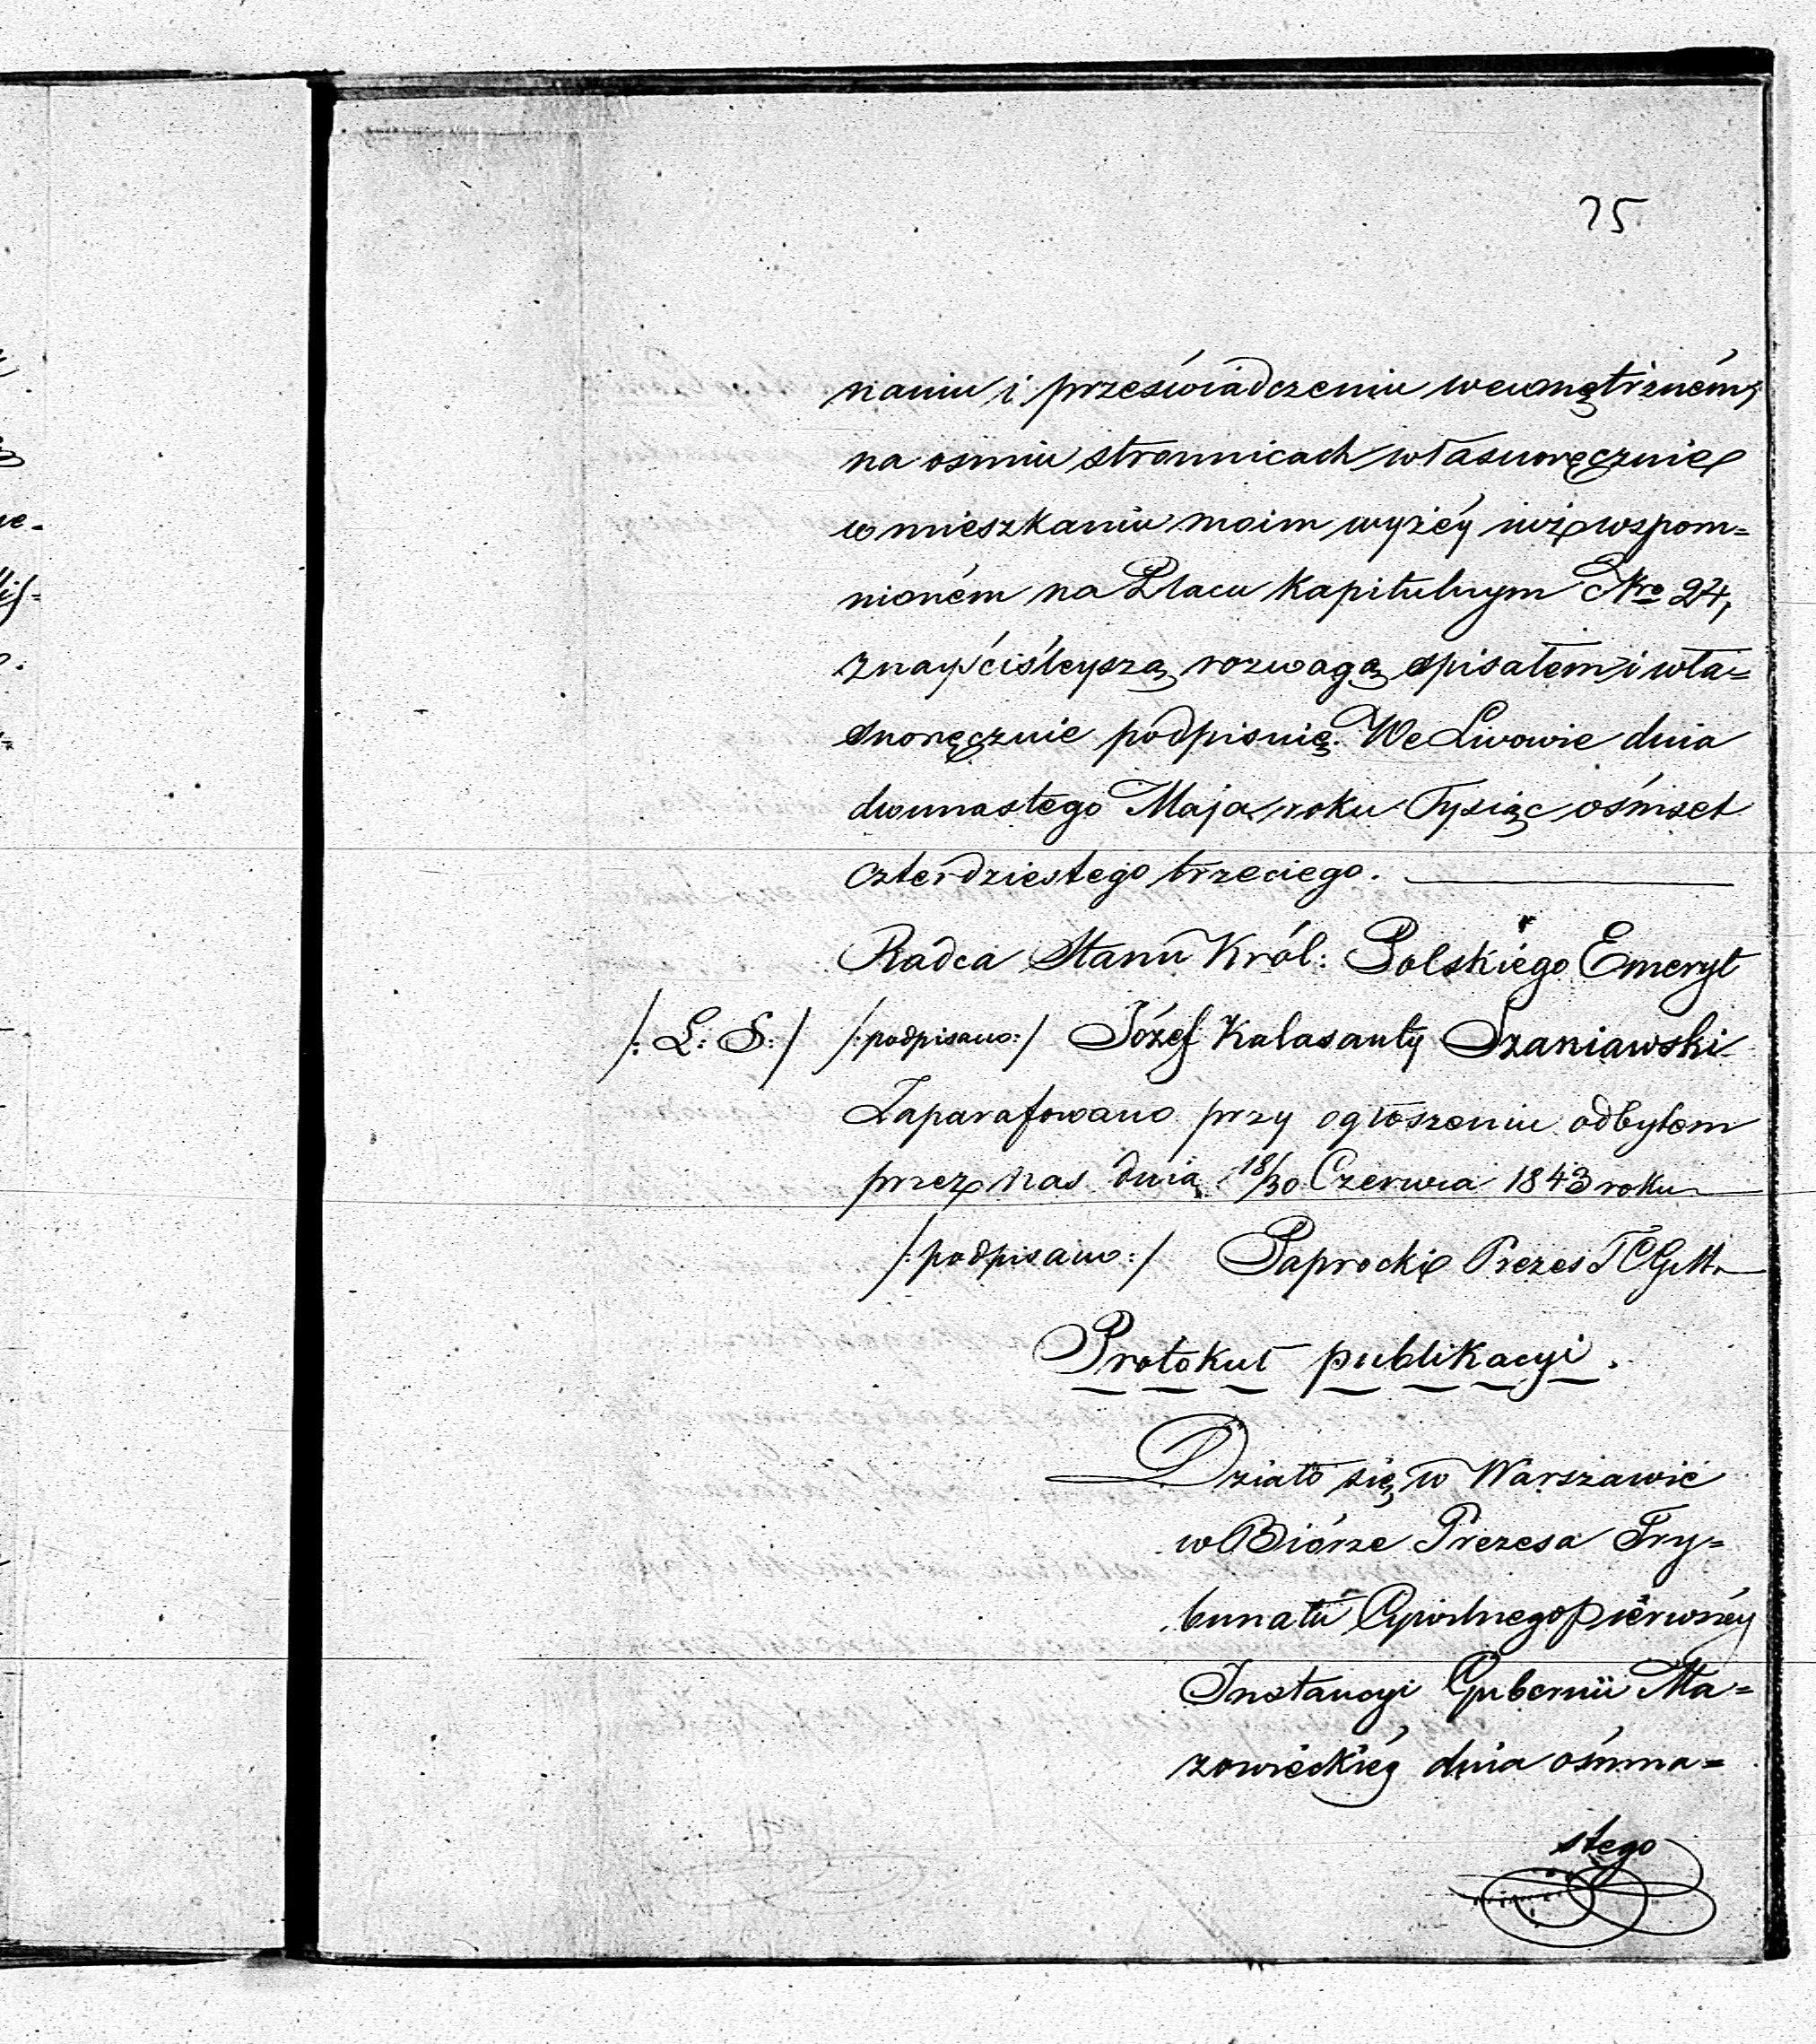 25
naniu i przeświadczeniu wewnętrzném,
na ośmiu stronnicach własnoręcznie
w mieszkaniu moim wyżéy iuż wspom=
nioném na Placu Kapitulnym Nro 24,
z nayściśleyszą rozwagą spisałem i wła=
snoręcznie podpisuię. We Lwowie dnia
dwunastego Maja roku Tysiąc ośmset
czterdziestego trzeciego.
Radca Stanu Król: Polskiégo Emeryt
/: L: S:/ /:podpisano:/ Józef Kalasanty Szaniawski
Zaparafowano przy ogłoszeniu odbytem
przez nas dnia 18/30 Czerwca 1843 roku
/:podpisano:/ Paprocki Prezes T C G M.
Protokuł publikacyi.
Działo się w Warszawié
w Biórze Prezesa Try=
bunału Cywilnego piérwszéy
Instancyi Gubernii Ma=
zowieckiéy dnia ośmna=
stego